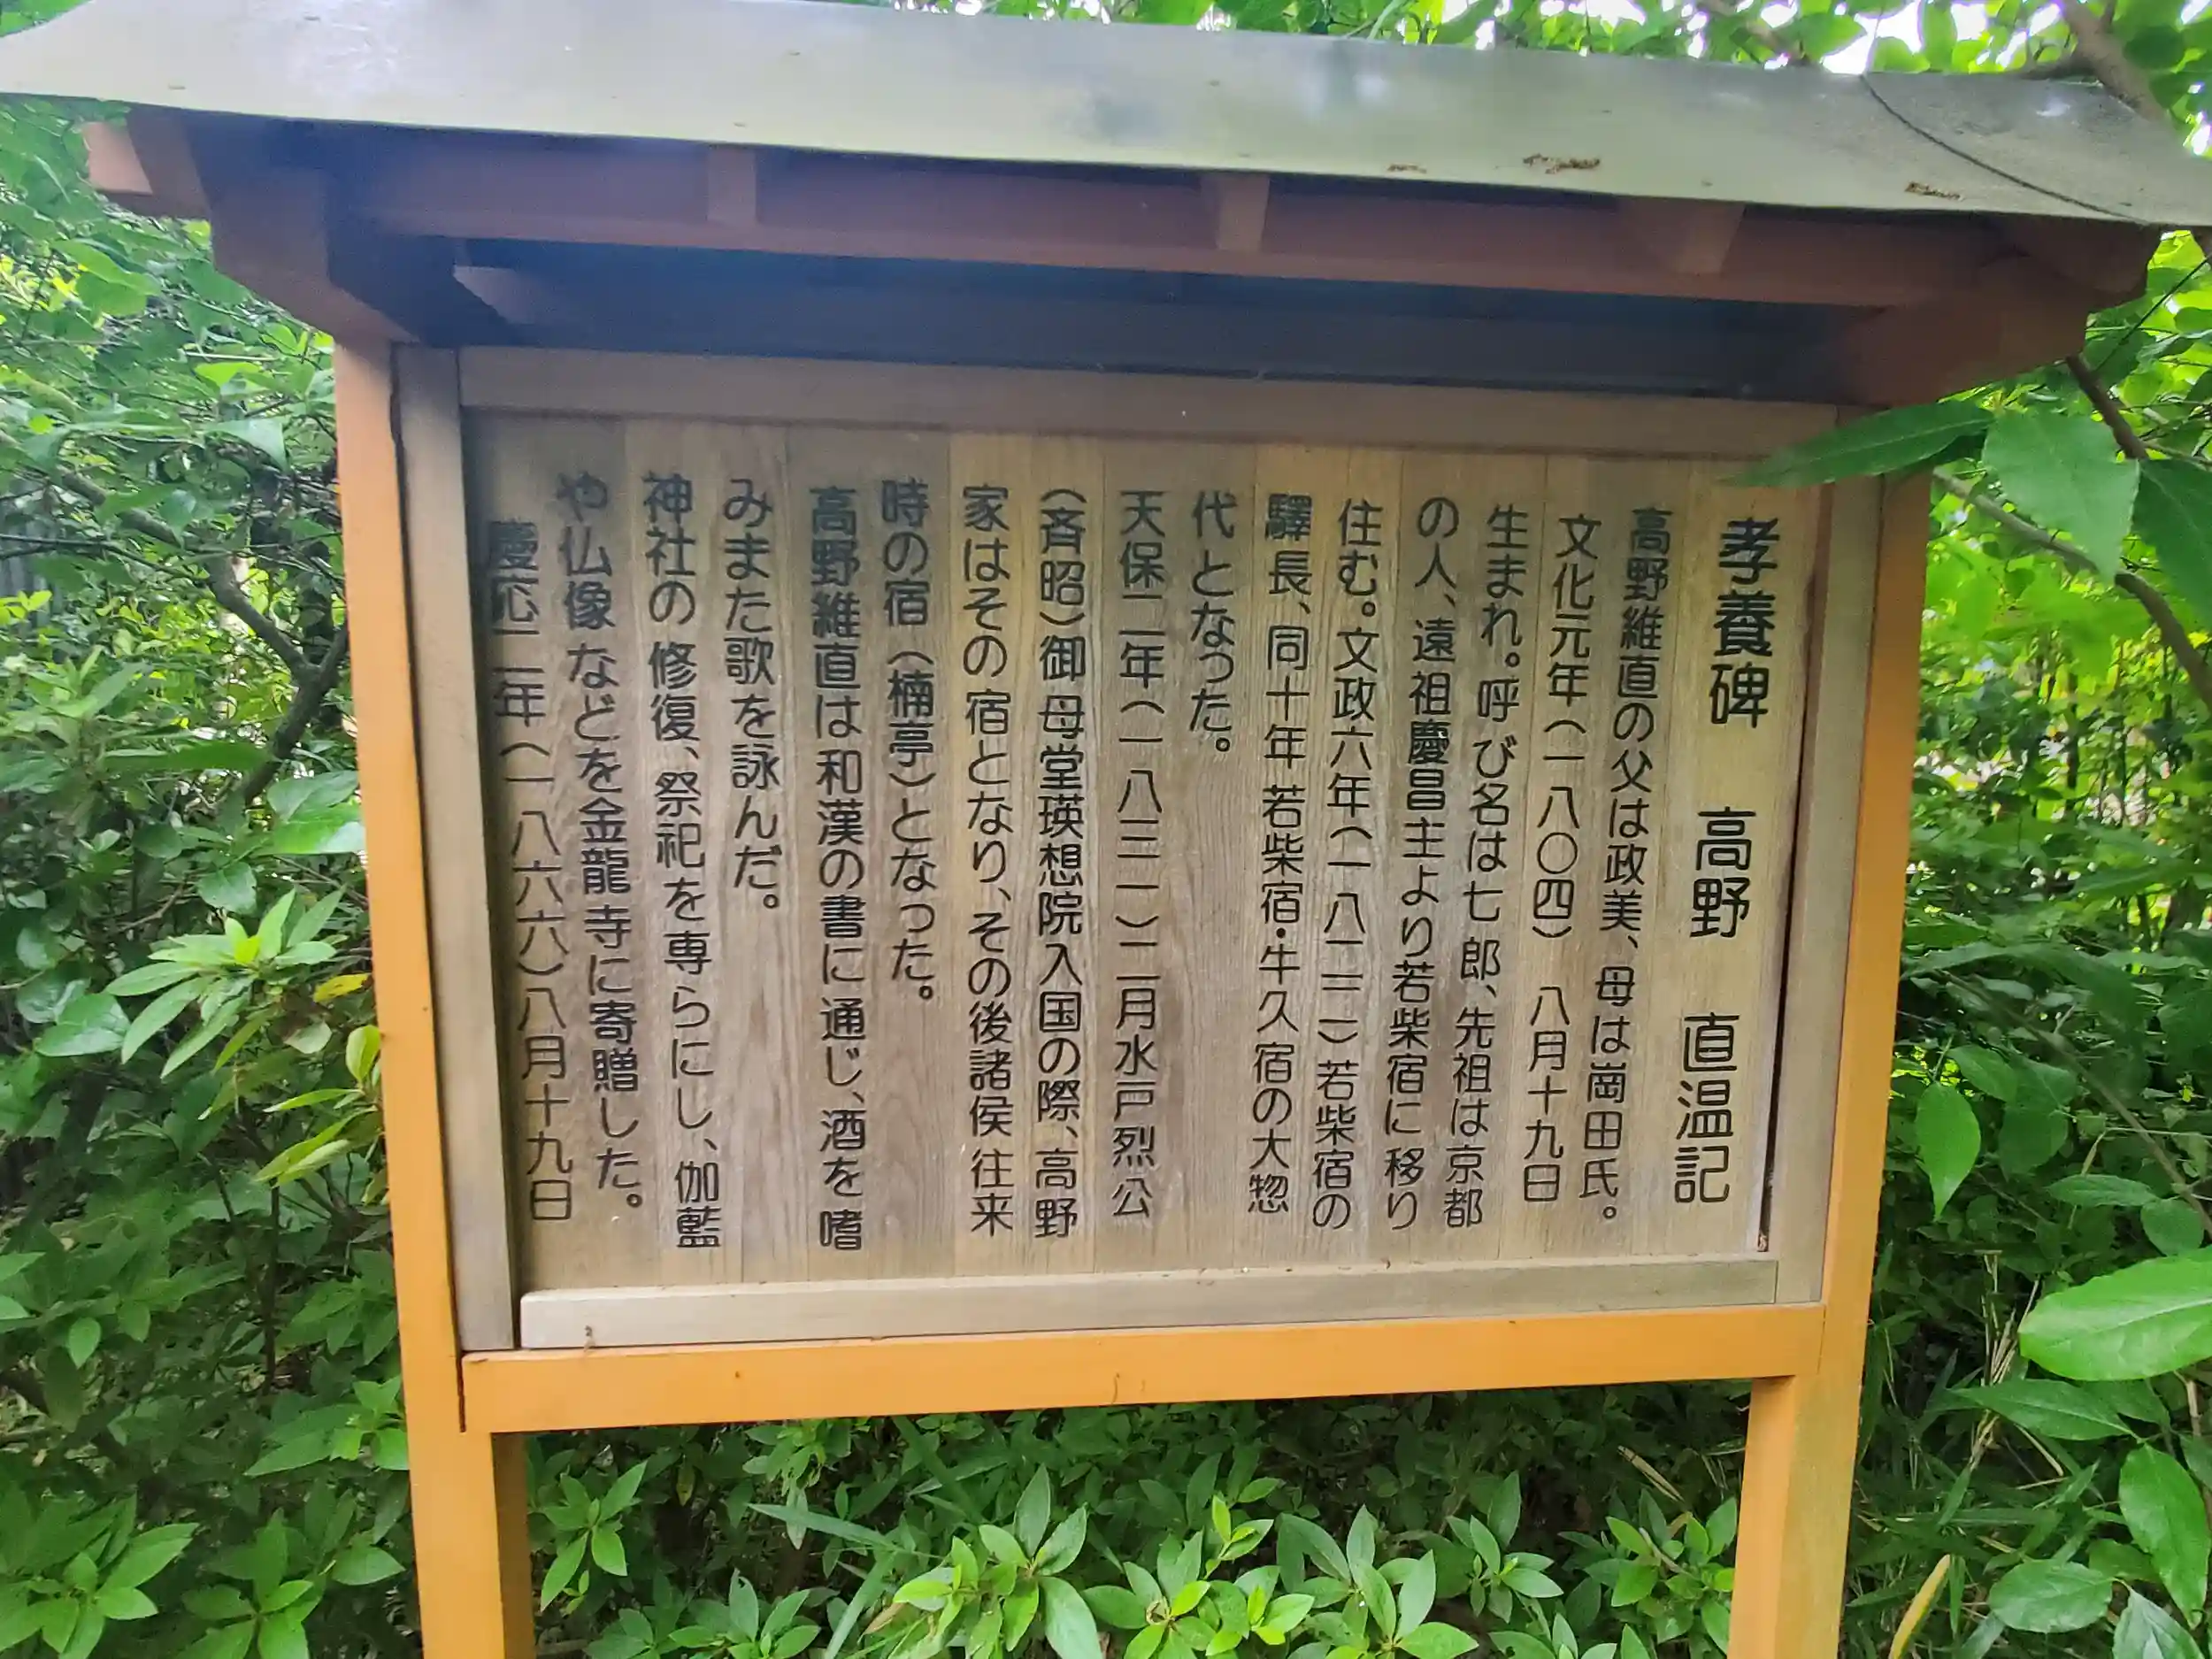 孝養碑　高野　直温記
高野維直の父は政美、母は崗田氏。
文化元年（一八〇四）　八月十九日
生まれ。呼び名は七郎、先祖は京都
の人、遠祖慶昌主より若柴宿に移り
住む。文政六年（一八二三）若柴宿の
驛長、同十年若柴宿・牛久宿の大惣
代となった。
天保二年（一八三一）二月水戸烈公
（斉昭）御母堂瑛想院入国の際、高野
家はその宿となり、その後諸侯往来
時の宿（楠亭）となった。
高野維直は和漢の書に通じ、酒を嗜
みまた歌を詠んだ。
神社の修復、祭祀を専らにし、伽藍
や仏像などを金龍寺に寄贈した。
慶応二年（一八六六）八月十九日